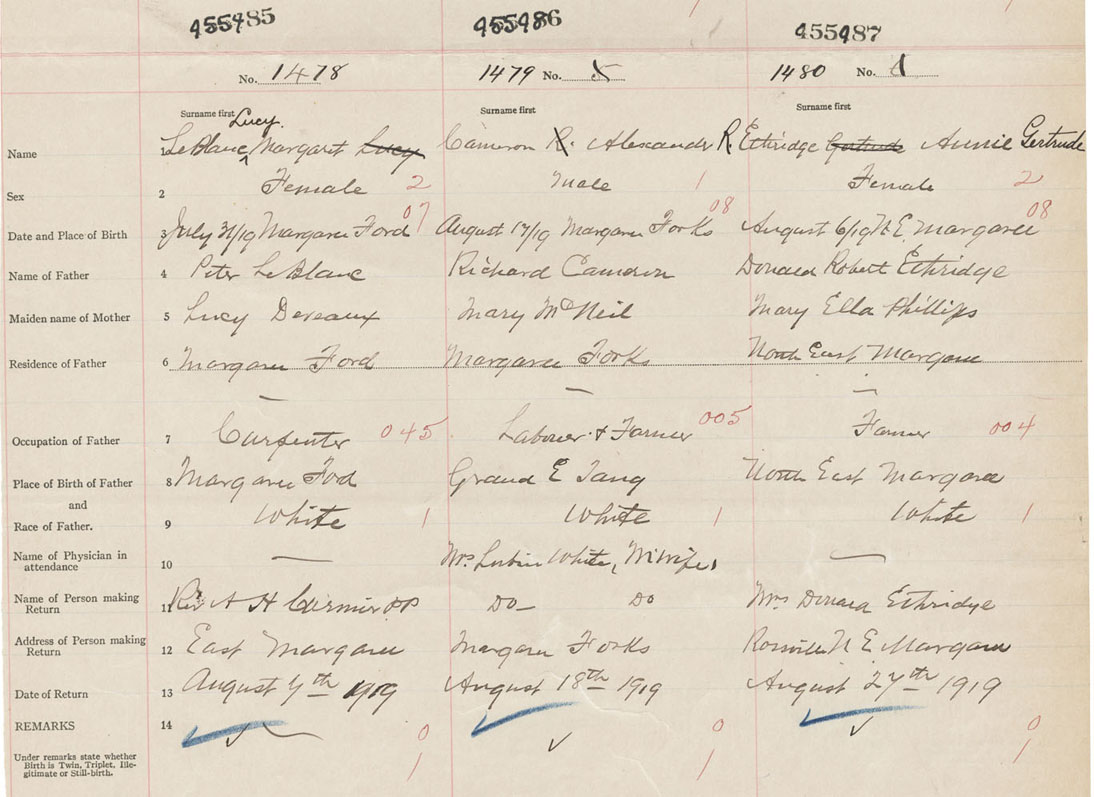 455485 455486 455487
No. 1478 1479 No. 5 1480 No. 1
Surname first Surname first Surname first
Lucy
Name 1 LeBlanc, Margaret Lucy Cameron R. Alexander R. Ethridge Gertrude Annie Gertrude
Sex 2 Female 2 Male 1 Female 2
07 08 08
Date and Place of Birth 3 July 31/19 Margaree Ford August 17/19 Margaree Forks August 6/19 N.E. Margaree
Name of Father 4 Peter LeBlanc Richard Cameron Donald Robert Ethridge
Maiden name of Mother 5 Lucy Deveaux Mary McNeil Mary Ella Phillips
Residence of Father 6 Margaree Ford Margaree Forks North East Margaree
Occupation of Father 7 Carpenter 045 Labourer & Farmer 005 Farmer 004
Place of Birth of Father 8 Margaree Ford Grand E Tang North East Margaree
and
Race of Father. 9 White 1 White 1 White 1
Name of Physician in
attendance 10 — Mrs White, Midwife —
Name of Person making
Return 11 Rev A H Cormier PP Do Do Mrs Donald Ethridge
Address of Person making
Return 12 East Margaree Margaree Forks N E Margaree
Date of Return 13 August 7th 1919 August 18th 1919 August 27th 1919
REMARKS 14 0 0 0
Under remarks state whether
Birth is Twin, Triplet, Ille-
gitimate or Still-birth. 1 1 1